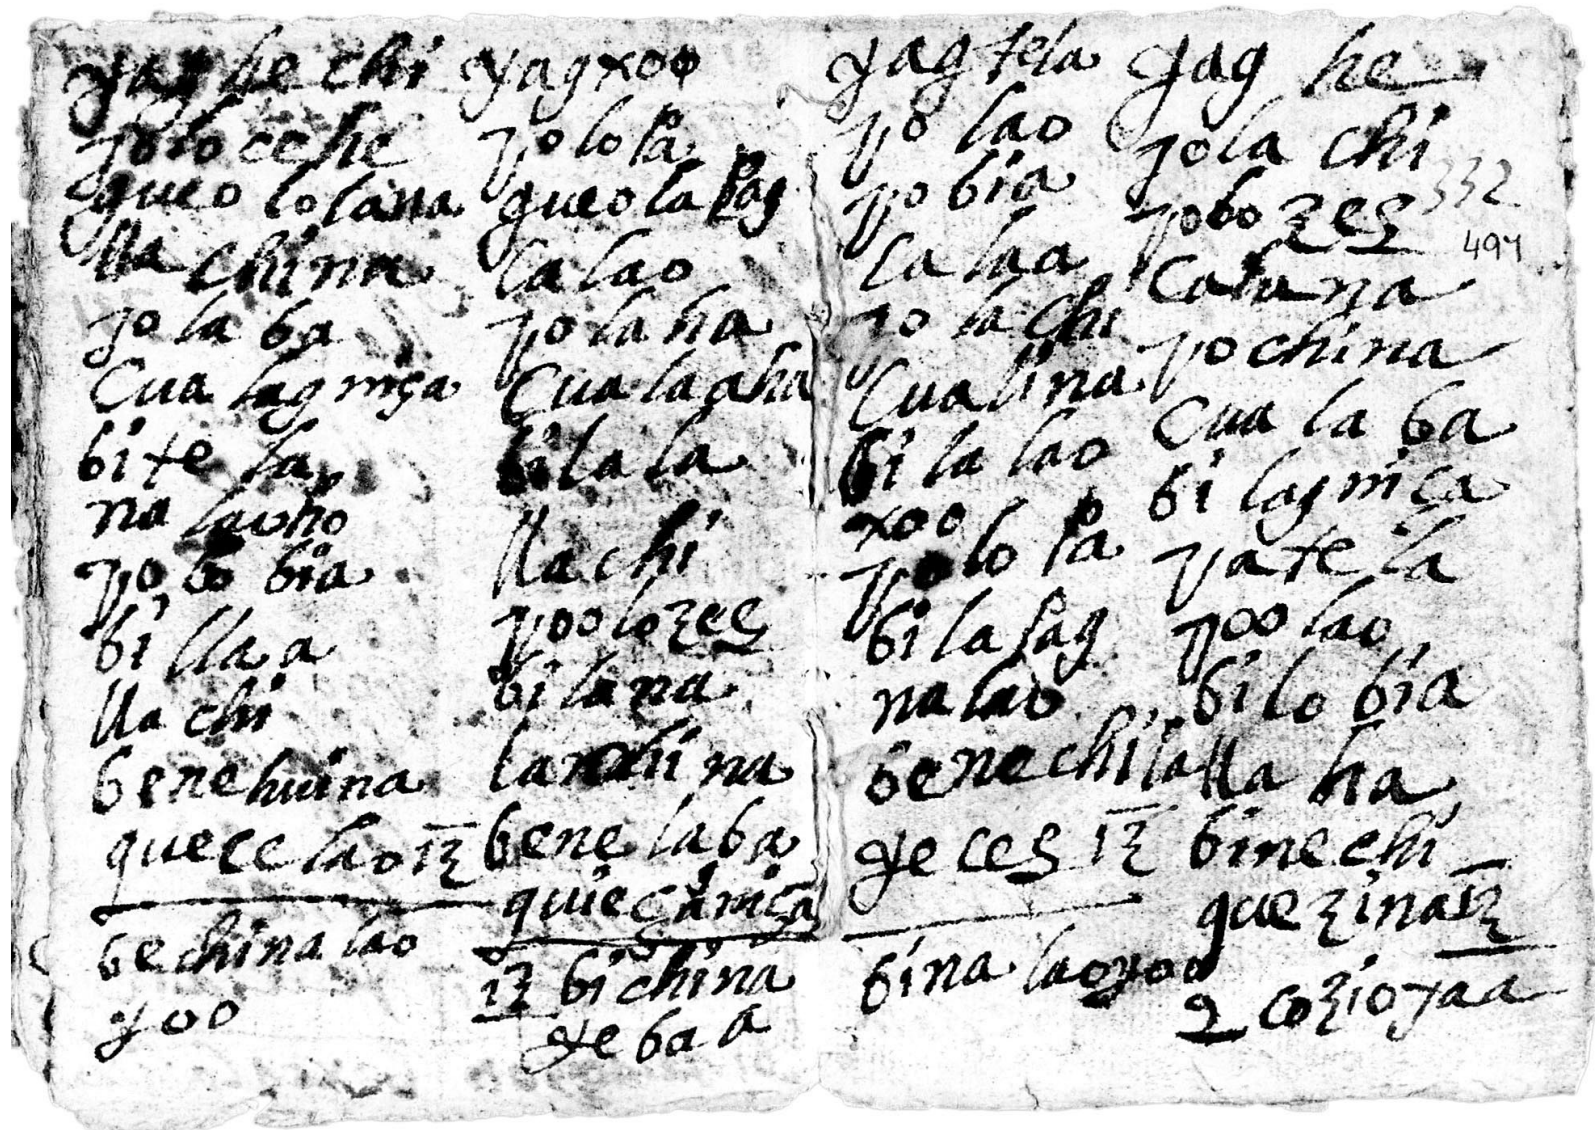 yag he chi
yolo ce he
queo lo lana
lla china
yo la ba
Cua lag niça
bi te la
na lao ho
yo lo bia
bi lla a
lla chi
bene huina
que ce lao 13
be china lao
yoo
yag xoo
yo lo la
queo la lag
la lao
yo la ha
Cua lag ha
bi la la
lla chi
yoo lo zee
bi la na
la china
bene la ba
quie ça niça
13 bi china
ye ba a
yag tela
yo lao
yo bia
la laa
yo la chi
Cua lina
bi la lao
xoo
yo lo la
bi la lag
na lao
bene chila
ye ce 13
bina lao yoo
yag he
yo la chi
332
yobo zee
491
Ca la na
yo china
Cua la ba
bi lag niça
ya te la
yoo lao
bi lo bia
lla ha
bine chi
que zina 13
2 cozio yaa